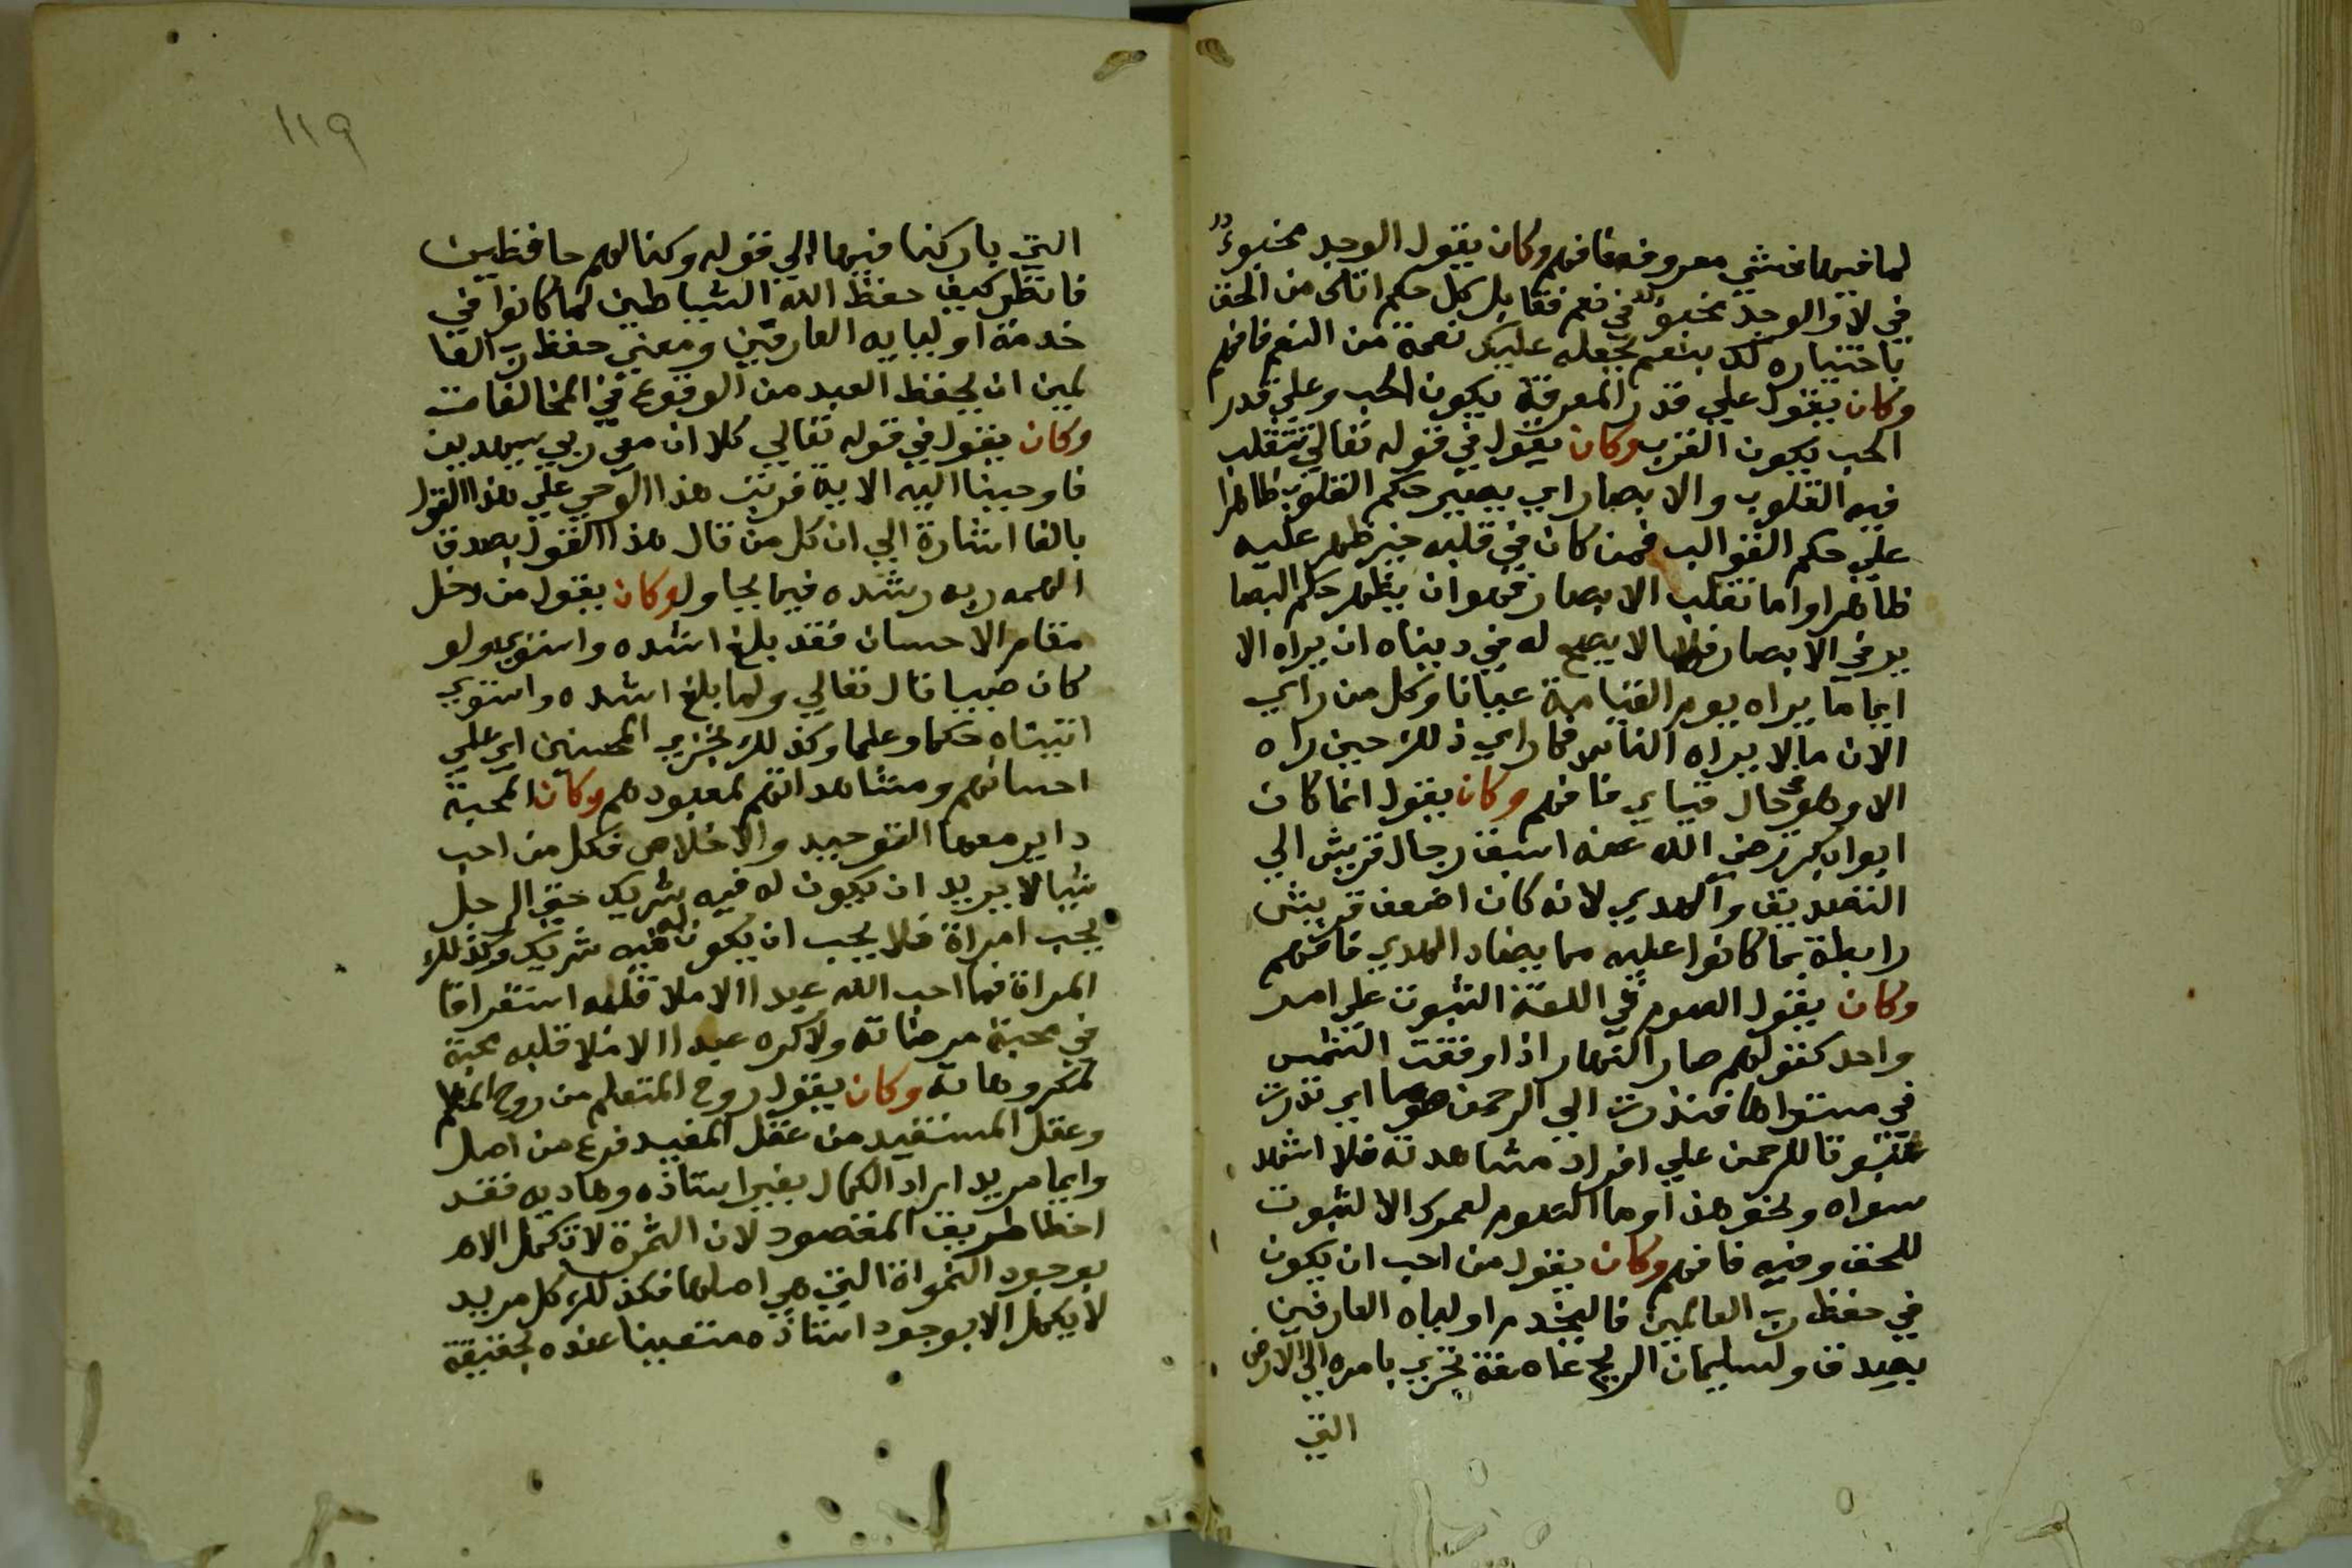 لما فيها فهشي معروفه فافهم وكان يقول الوجد مخبوء
في لا والوجد مخبوء في نعم فقابل كل حكم اتاك من الحق
باختياره لك بنعم يجعله عليك نعمة من النعم فافهم
وكان يقول علي قدر المعرفة يكون الحب وعلي قدر
الحب يكون القرب وكان يقول في قوله تعالي تتقلب
فيه القلوب والابصار اي يصير حكم القلوب ظاهرا
علي حكم القوالب فمن كان في قلبه خير ظهر عليه
ظاهرا واما تقلب الابصار فهو ان يظهر حكم البصا
ير في الابصار فلا يصح له في دنياه ان يراه الا
انما يراه يوم القيامة عيانا وكل من راي
الان مالا يراه الناس فما راي ذلك حين راه
الا وهو في حال قيامي فافهم وكان يقول انما كان
ابو بكر رضي الله عنه اسبق رجال قريش الي
التصديق والهدي لانه كان اضعف قريش
رابطة بما كانوا عليه مما يضاد الهدي فافهم
وكان يقول الصوم في اللغة الثبوت علي امر
واحد كقولهم صار النهار اذا وقفت الشمس
في مستواها فنذرت الي الرحمن صوما اي نذرت
ثبوتا للرحمن علي افراد مشاهدته فلا اشهد
سواه ونحو هذا وما الصوم لعمرك الا لثبوت
للحق وفيه فافهم وكان يقول من احب ان يكون
في حفظ رب العالمين فاليخدم اولياه العارفين
بصدق ولسليمان الريح عاصفة تجري بامره الي الارض
التي
١١٩
التي باركنا فيها الي قوله وكنا لهم حافظين
فانظر كيف حفظ الله الشياطين لما كانوا في
خدمة اوليايه العارفين ومعني حفظ رب العا
لمين ان يحفظ العبد من الوقوع في المخالفات
وكان يقول في قوله تعالي كلا ان معي ربي سيهدين
فاوحينا اليه الاية فرتب هذا الوحي علي هذا القول
بالفا اشارة الي ان كل من قال هذا القول بصدق
الهمه ربه رشده فيما يحاول وكان يقول من دخل
مقام الاحسان فقد بلغ اشده واستوي ولو
كان صبيا قال تعالي ولما بلغ اشده واستوي
اتيناه حكما وعلما وكذلك نجزي المحسنين اي علي
احسانهم ومشاهداتهم لمعبودهم وكان المحبة
داير معها التوحيد والاخلاص فكل من احب
شيا لا يريد ان يكون له فيه شريك حتي الرجل
يحب امراة فلا يحب ان يكون له فيه شريك وكذلك
المراة فما احب الله عبدا الا ملا قلبه استغراقا
في محبة مرضاته ولا كره عبدا الا ملا قلبه محبة
لمكروهاته وكان يقول روح المتعلم من روح المعلم
وعقل المستفيد من عقل المفيد فرع من اصل
وايما مريد اراد الكمال بغير استاذه وهاديه فقد
اخطا طريق المقصود لان الثمرة لا تكمل الا
بوجود النواة التي هي اصلها فكذلك كل مريد
لا يكمل الا بوجود استاذه متعينا عنده لحقيقة